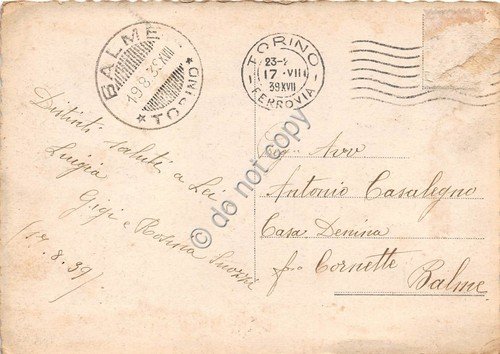 BALME
19.8.39 XVII
* TORINO *
TORINO
23-
17 · VIII
39 XVII
FERROVIA
Distinti saluti a Lei
Luigia
Gigi e Rosina
(17.8.39)
Avv
Antonio Casalegno
Casa Denina
Cornette
Balme
© do not copy